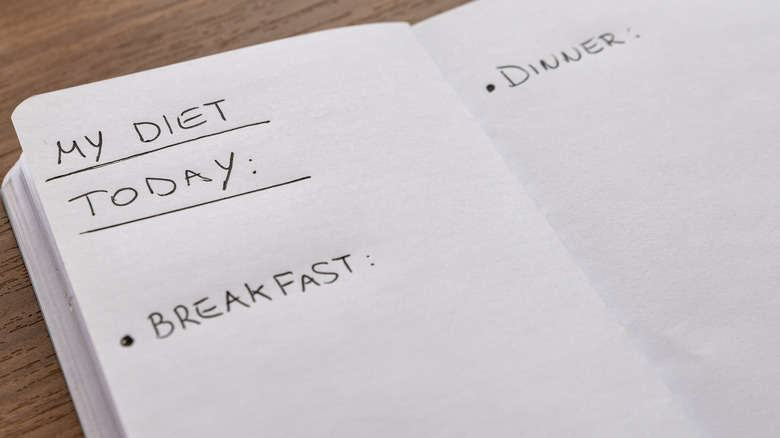 MY DIET
TODAY:
• BREAKFAST:
• DINNER: